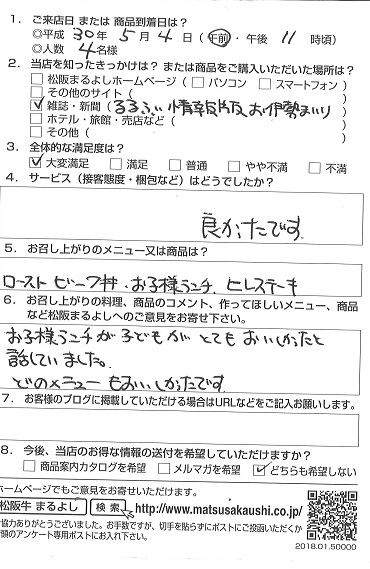 1. ご来店日 または 商品到着日は？
◎平成 30 年 5 月 4 日（午前・午後 11 時頃）
◎人数 4 名様
2. 当店を知ったきっかけは？または商品をご購入いただいた場所は？
□松阪まるよしホームページ（□パソコン □スマートフォン）
□その他のサイト（ ）
☑雑誌・新聞（るるぶ 情報版 お伊勢まいり ）
□ホテル・旅館・売店など（ ）
□その他（ ）
3. 全体的な満足度は？
☑大変満足 □満足 □普通 □やや不満 □不満
4. サービス（接客態度・梱包など）はどうでしたか？
良かったです。
5. お召し上がりのメニュー又は商品は？
ローストビーフ丼・お子様ランチ、ヒレステーキ
6. お召し上がりの料理、商品のコメント、作ってほしいメニュー、商品
など松阪まるよしへのご意見をお寄せ下さい。
お子様ランチが子どもがとてもおいしかったと
話していました。
どのメニューもおいしかったです
7. お客様のブログに掲載していただける場合はURLなどをご記入お願いします。
8. 今後、当店のお得な情報の送付を希望していただけますか？
□商品案内カタログを希望 □メルマガを希望 ☑どちらも希望しない
ホームページでもご意見をお寄せいただけます。
松阪牛 まるよし 検索 http://www.matsusakaushi.co.jp/
協力ありがとうございました。お手数ですが、切手を貼らずにポストにご投函いただくか
頭のアンケート専用ポストにお入れ下さい。
2018.01.50000